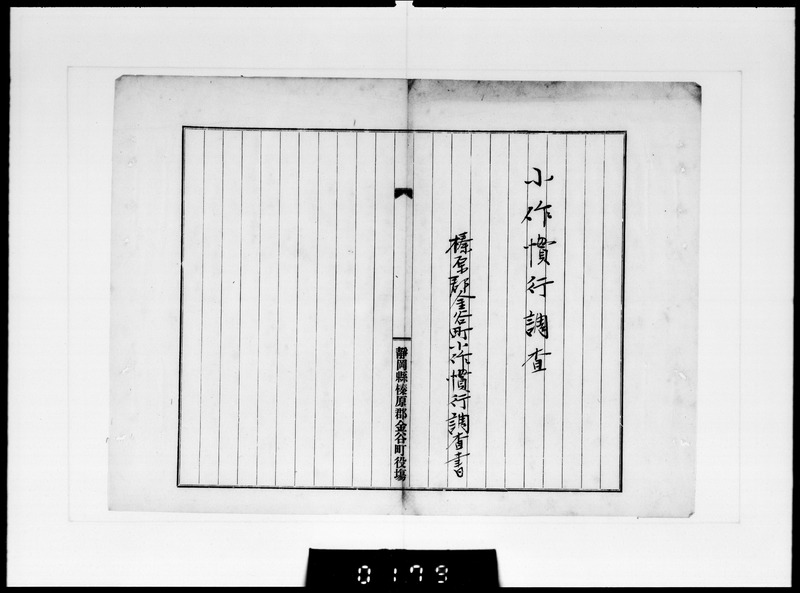 小作慣行調査
榛原郡金谷町小作慣行調査書
靜岡縣榛原郡金谷町役塲
0179